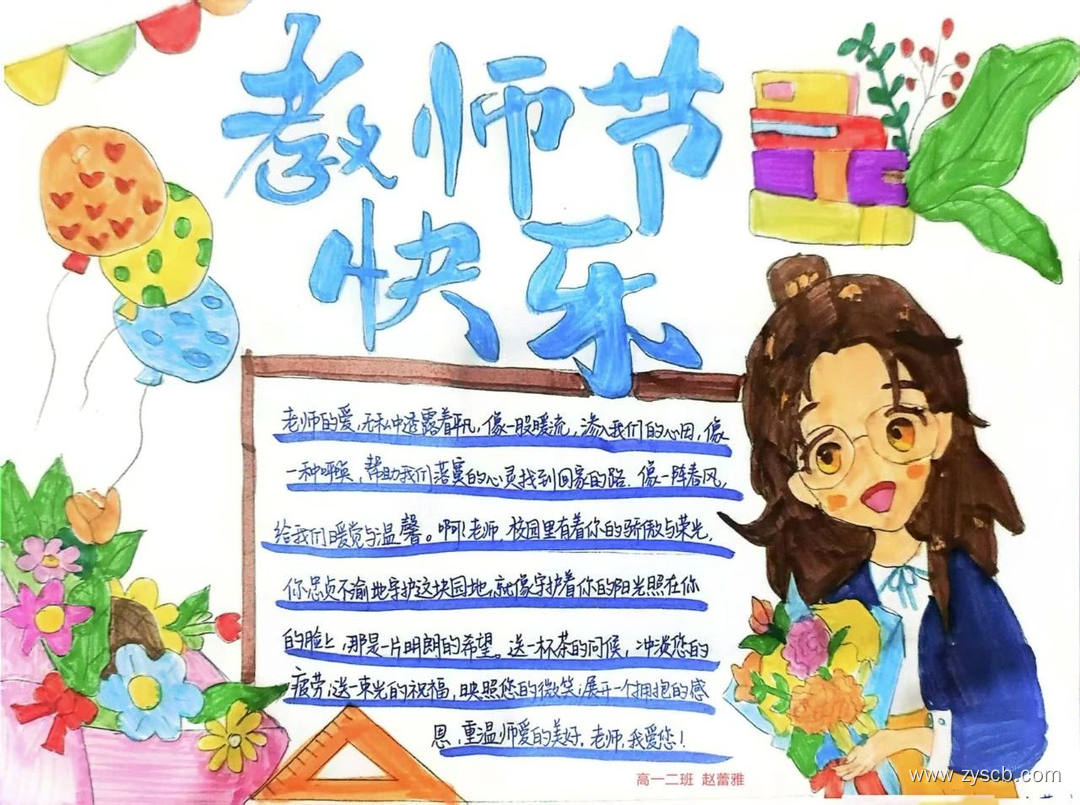 教师节
快乐
老师的爱,无私中透露着平凡,像一股暖流,渗入我们的心田,像
一种呼唤,帮助我们落寞的心灵找到回家的路.像一阵春风,
给我们暖觉与温馨。啊!老师,校园里有着你的骄傲与荣光,
你忠贞不渝地守护这块园地,就像守护着你的阳光照在你
的脸上,那是一片明朗的希望。送一杯茶的问候,冲淡您的
疲劳;送一束光的祝福,映照您的微笑;展开一个拥抱的感
恩,重温师爱的美好,老师,我爱您!
高一二班 赵蕾雅
www.zyscb.com